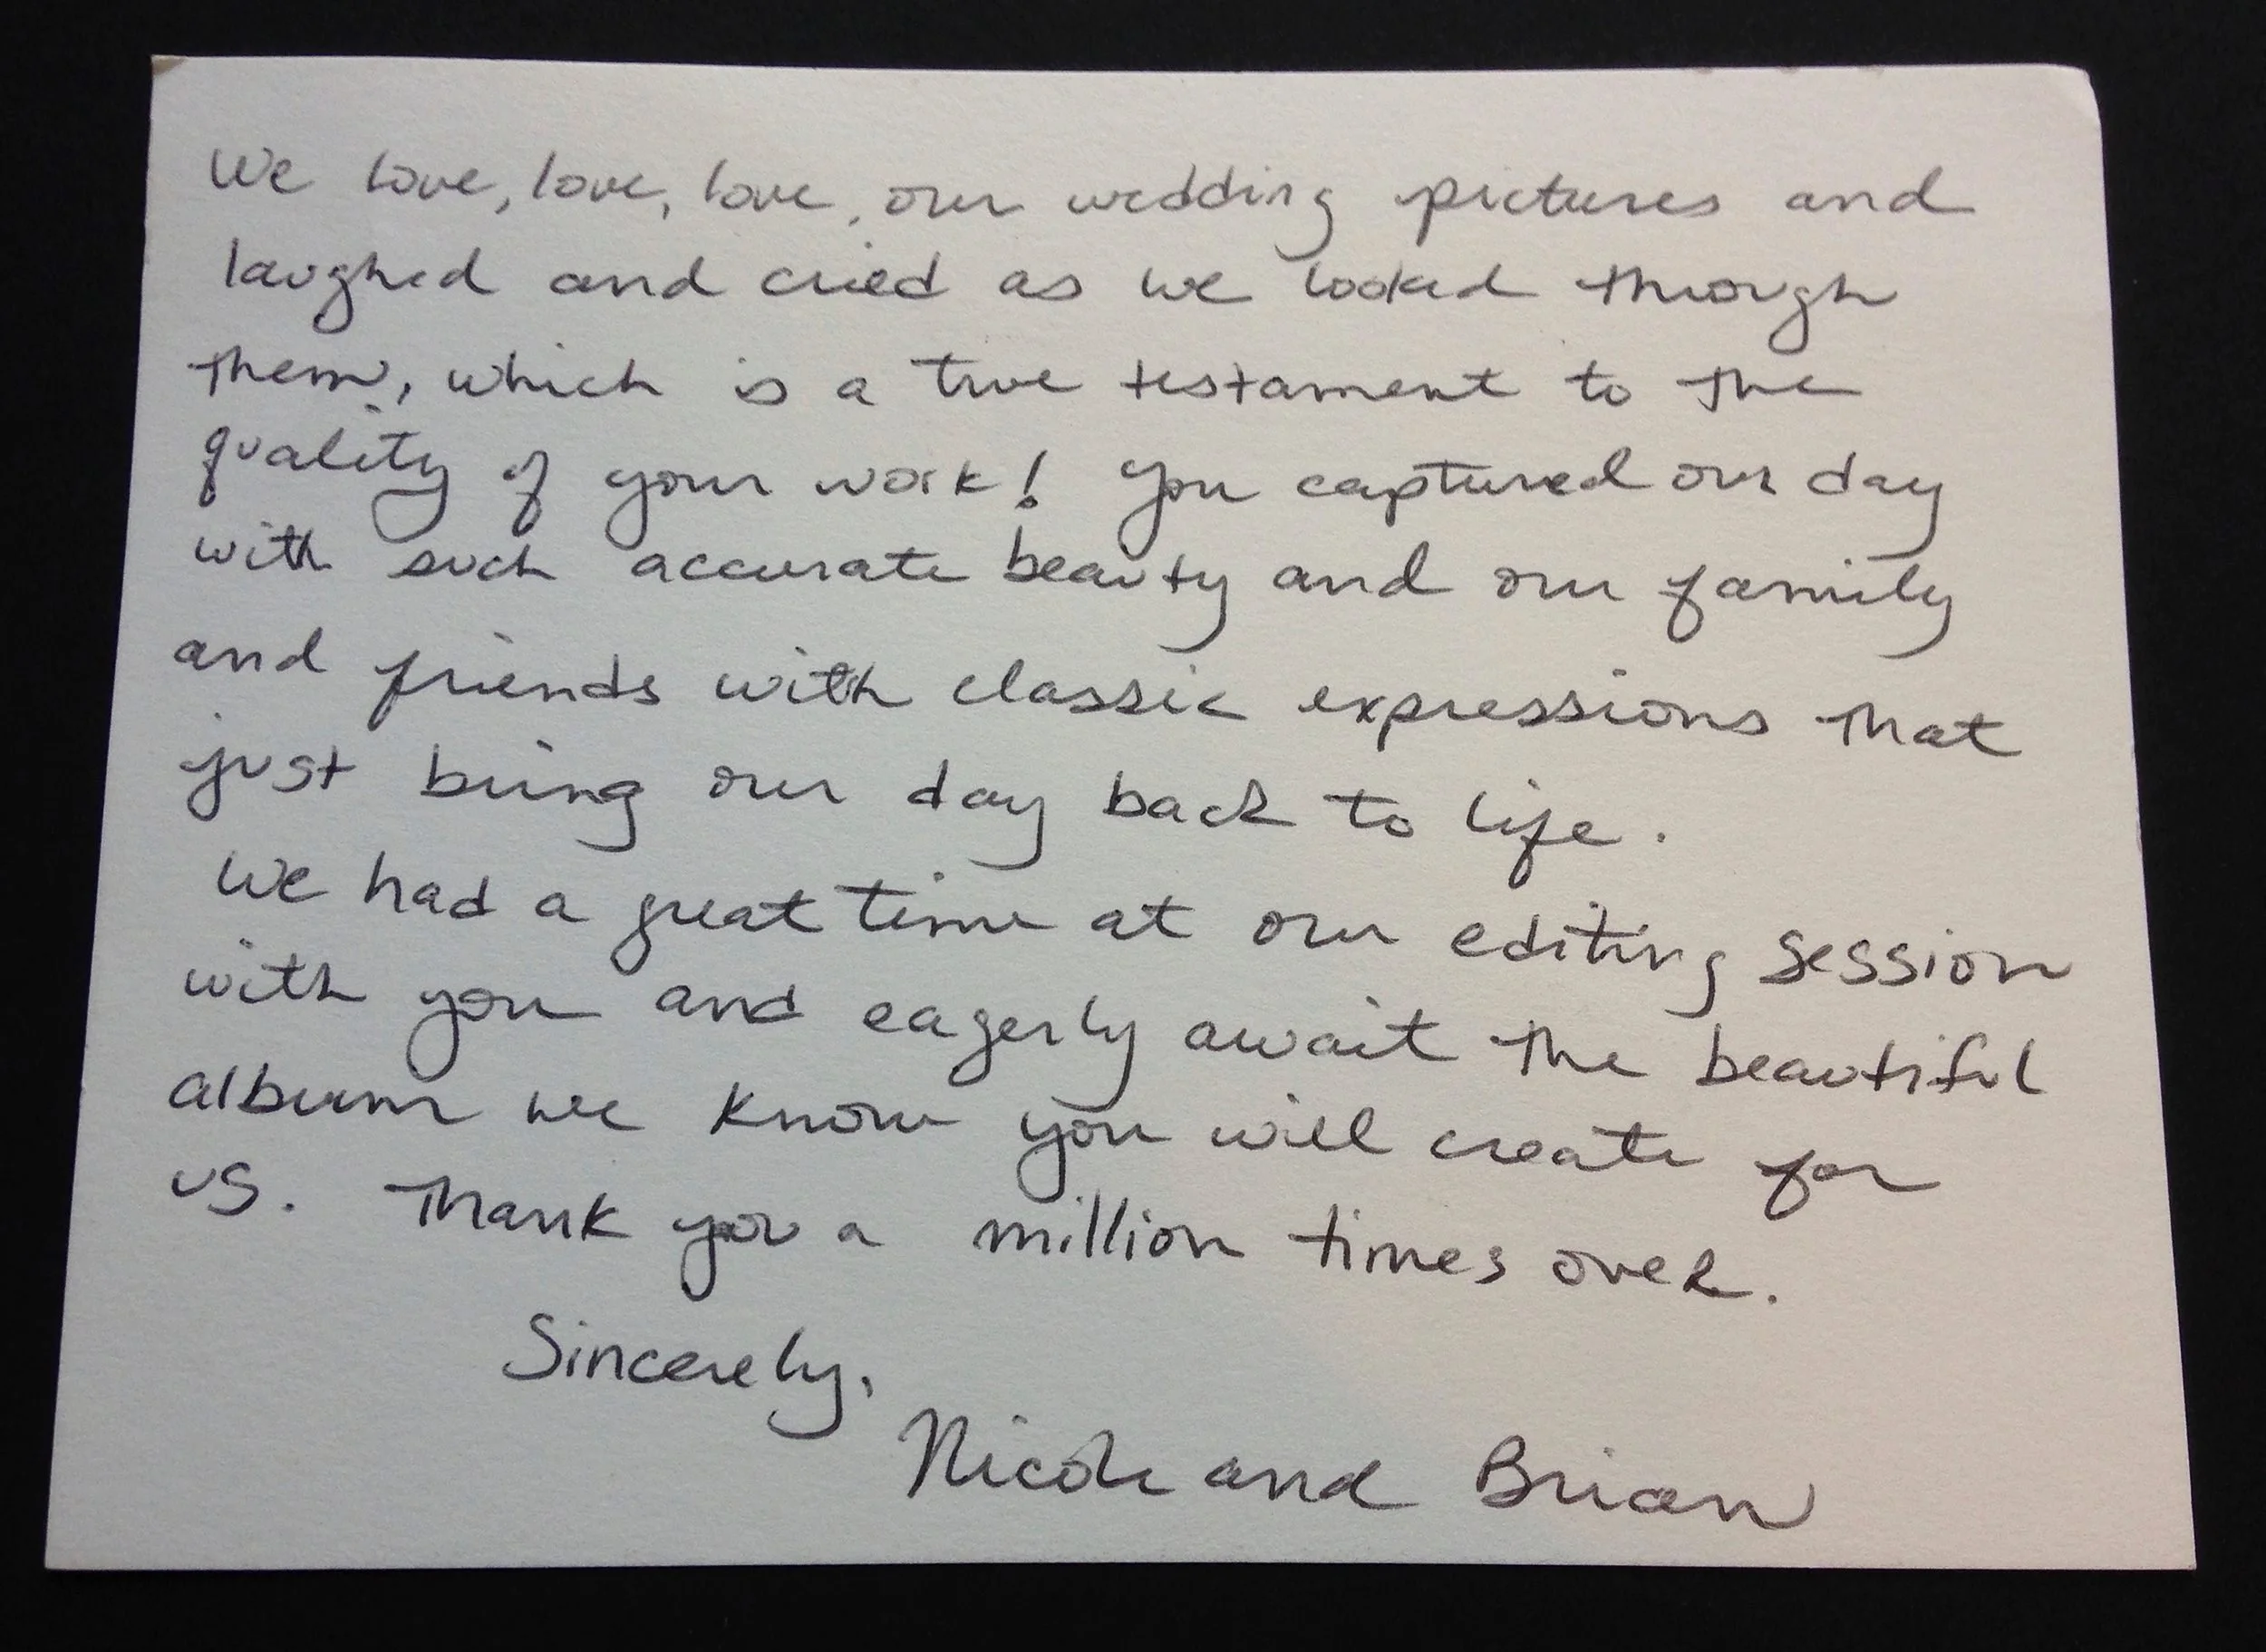 We love, love, love, our wedding pictures and
laughed and cried as we looked through
them, which is a true testament to the
quality of your work! You captured our day
with such accurate beauty and our family
and friends with classic expressions that
just bring our day back to life.
We had a great time at our editing session
with you and eagerly await the beautiful
album we know you will create for
us. Thank you a million times over.
Sincerely,
Nicole and Brian